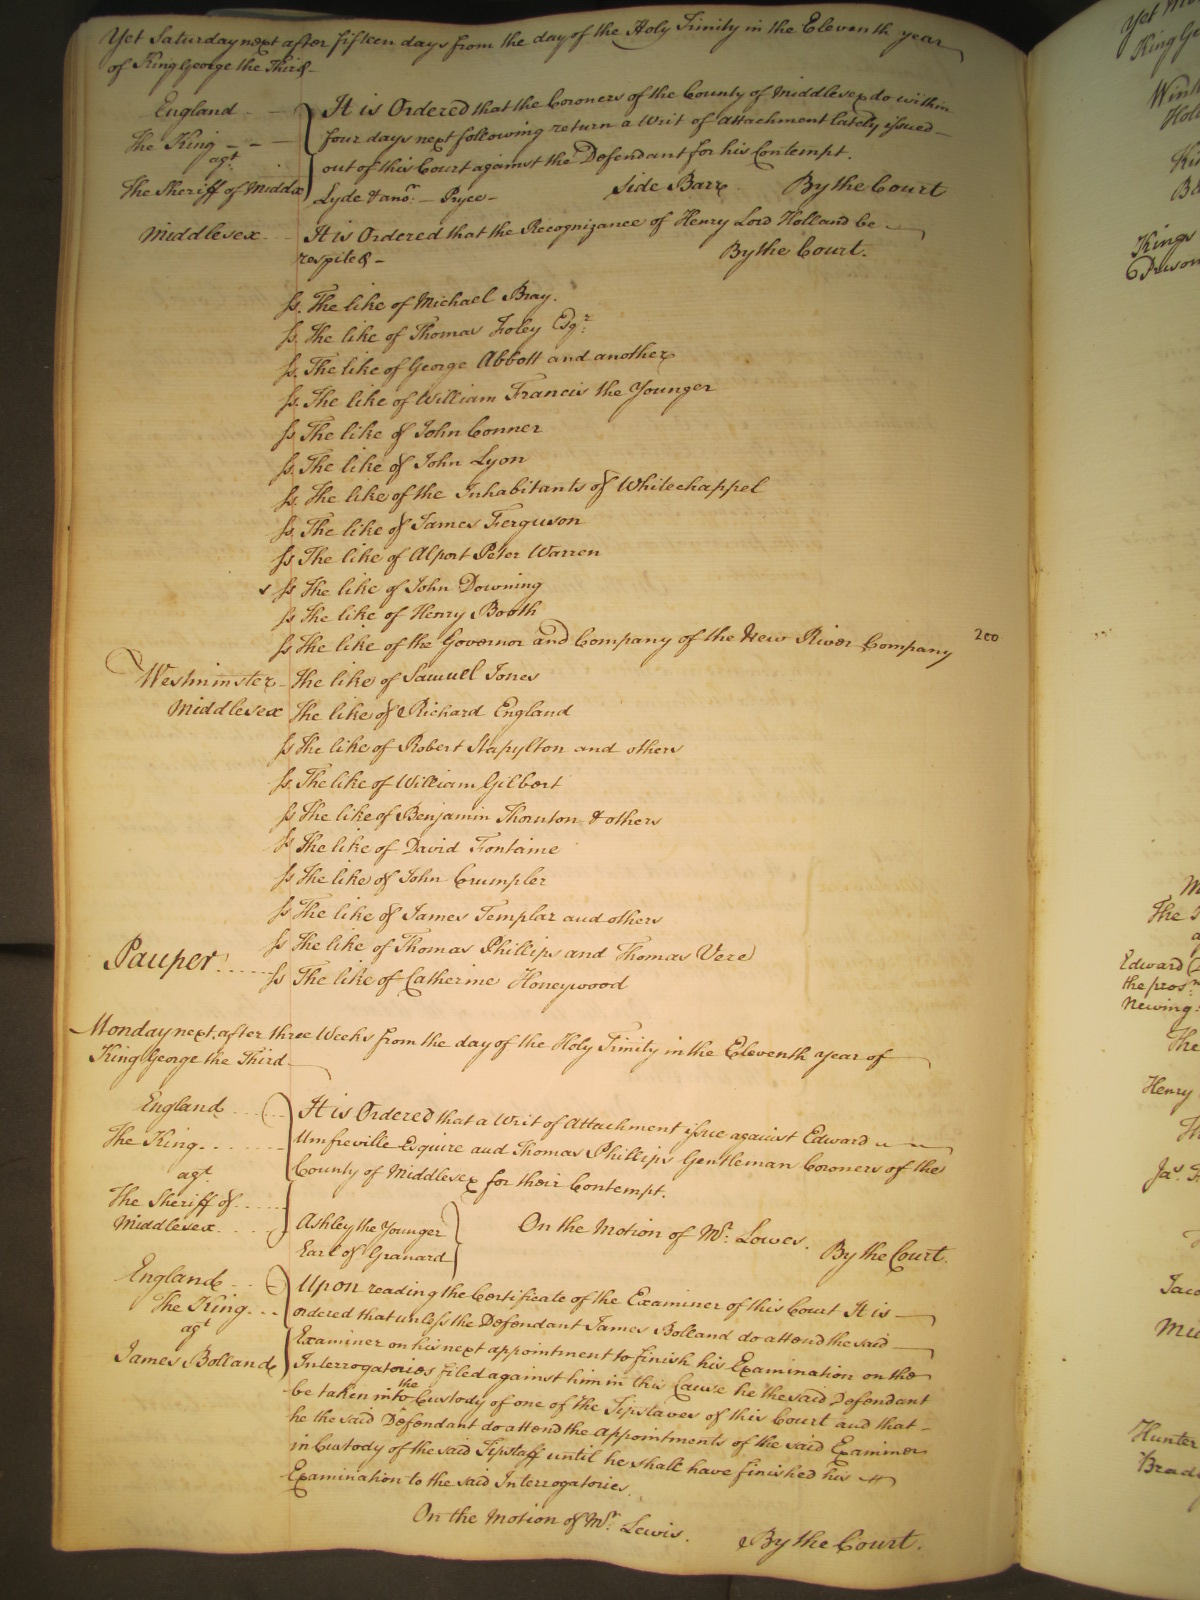 Yet Saturday next after fifteen days from the day of the Holy Trinity in the Eleventh year
of King George the Third
England It is Ordered that the Coroners of the County of Middlesex do within
The King four days next following return a Writ of Attachment lately issued
agt. out of this Court against the Defendant for his Contempt.
The Sheriff of Middx Lyde & anor. Pryce Side Barr By the Court
Middlesex It is Ordered that the Recognizance of Henry Lord Holland be
respited By the Court.
ss. The like of Michael Bray.
ss. The like of Thomas Foley Esqr:
ss. The like of George Abbott and another
ss. The like of William Francis the Younger
ss The like of John Conner
ss. The like of John Lyon
ss. The like of the Inhabitants of Whitechappel
ss. The like of James Ferguson
ss The like of Alport Peter Warren
ss The like of John Downing
ss The like of Henry Booth
ss The like of the Governor and Company of the New River Company 200
Westminster The like of Samuel Jones
Middlesex The like of Richard England
ss The like of Robert Stapylton and others
ss. The like of William Gilbert
ss The like of Benjamin Thornton & others
ss The like of David Fontaine
ss The like of John Crumpler
ss The like of James Templar and others
ss The like of Thomas Phillips and Thomas Vere
Pauper ss The like of Catherine Honeywood
Monday next after three Weeks from the day of the Holy Trinity in the Eleventh year of
King George the Third
England It is Ordered that a Writ of Attachment issue against Edward
The King Umfreville Esquire and Thomas Phillips Gentleman Coroners of the
agt. County of Middlesex for their Contempt.
The Sheriff of
Middlesex Ashley the Younger On the Motion of Mr. Lowes.
Earl of Granard By the Court.
England Upon reading the Certificate of the Examiner of this Court It is
The King ordered that unless the Defendant James Bolland do attend the said
agt Examiner on his next appointment to finish his Examination on the
James Bolland Interrogatories filed against him in this Cause he the said Defendant
be taken into the Custody of one of the Tipstaves of this Court and that
he the said Defendant do attend the appointments of the said Examiner
in Custody of the said Tipstaff until he shall have finished his
Examination to the said Interrogatories.
On the Motion of Mr. Lewis. By the Court.
King Ge
Kings
Prison
The
Edward
the pros
Newing
The
Henry
Jas.
Hunter